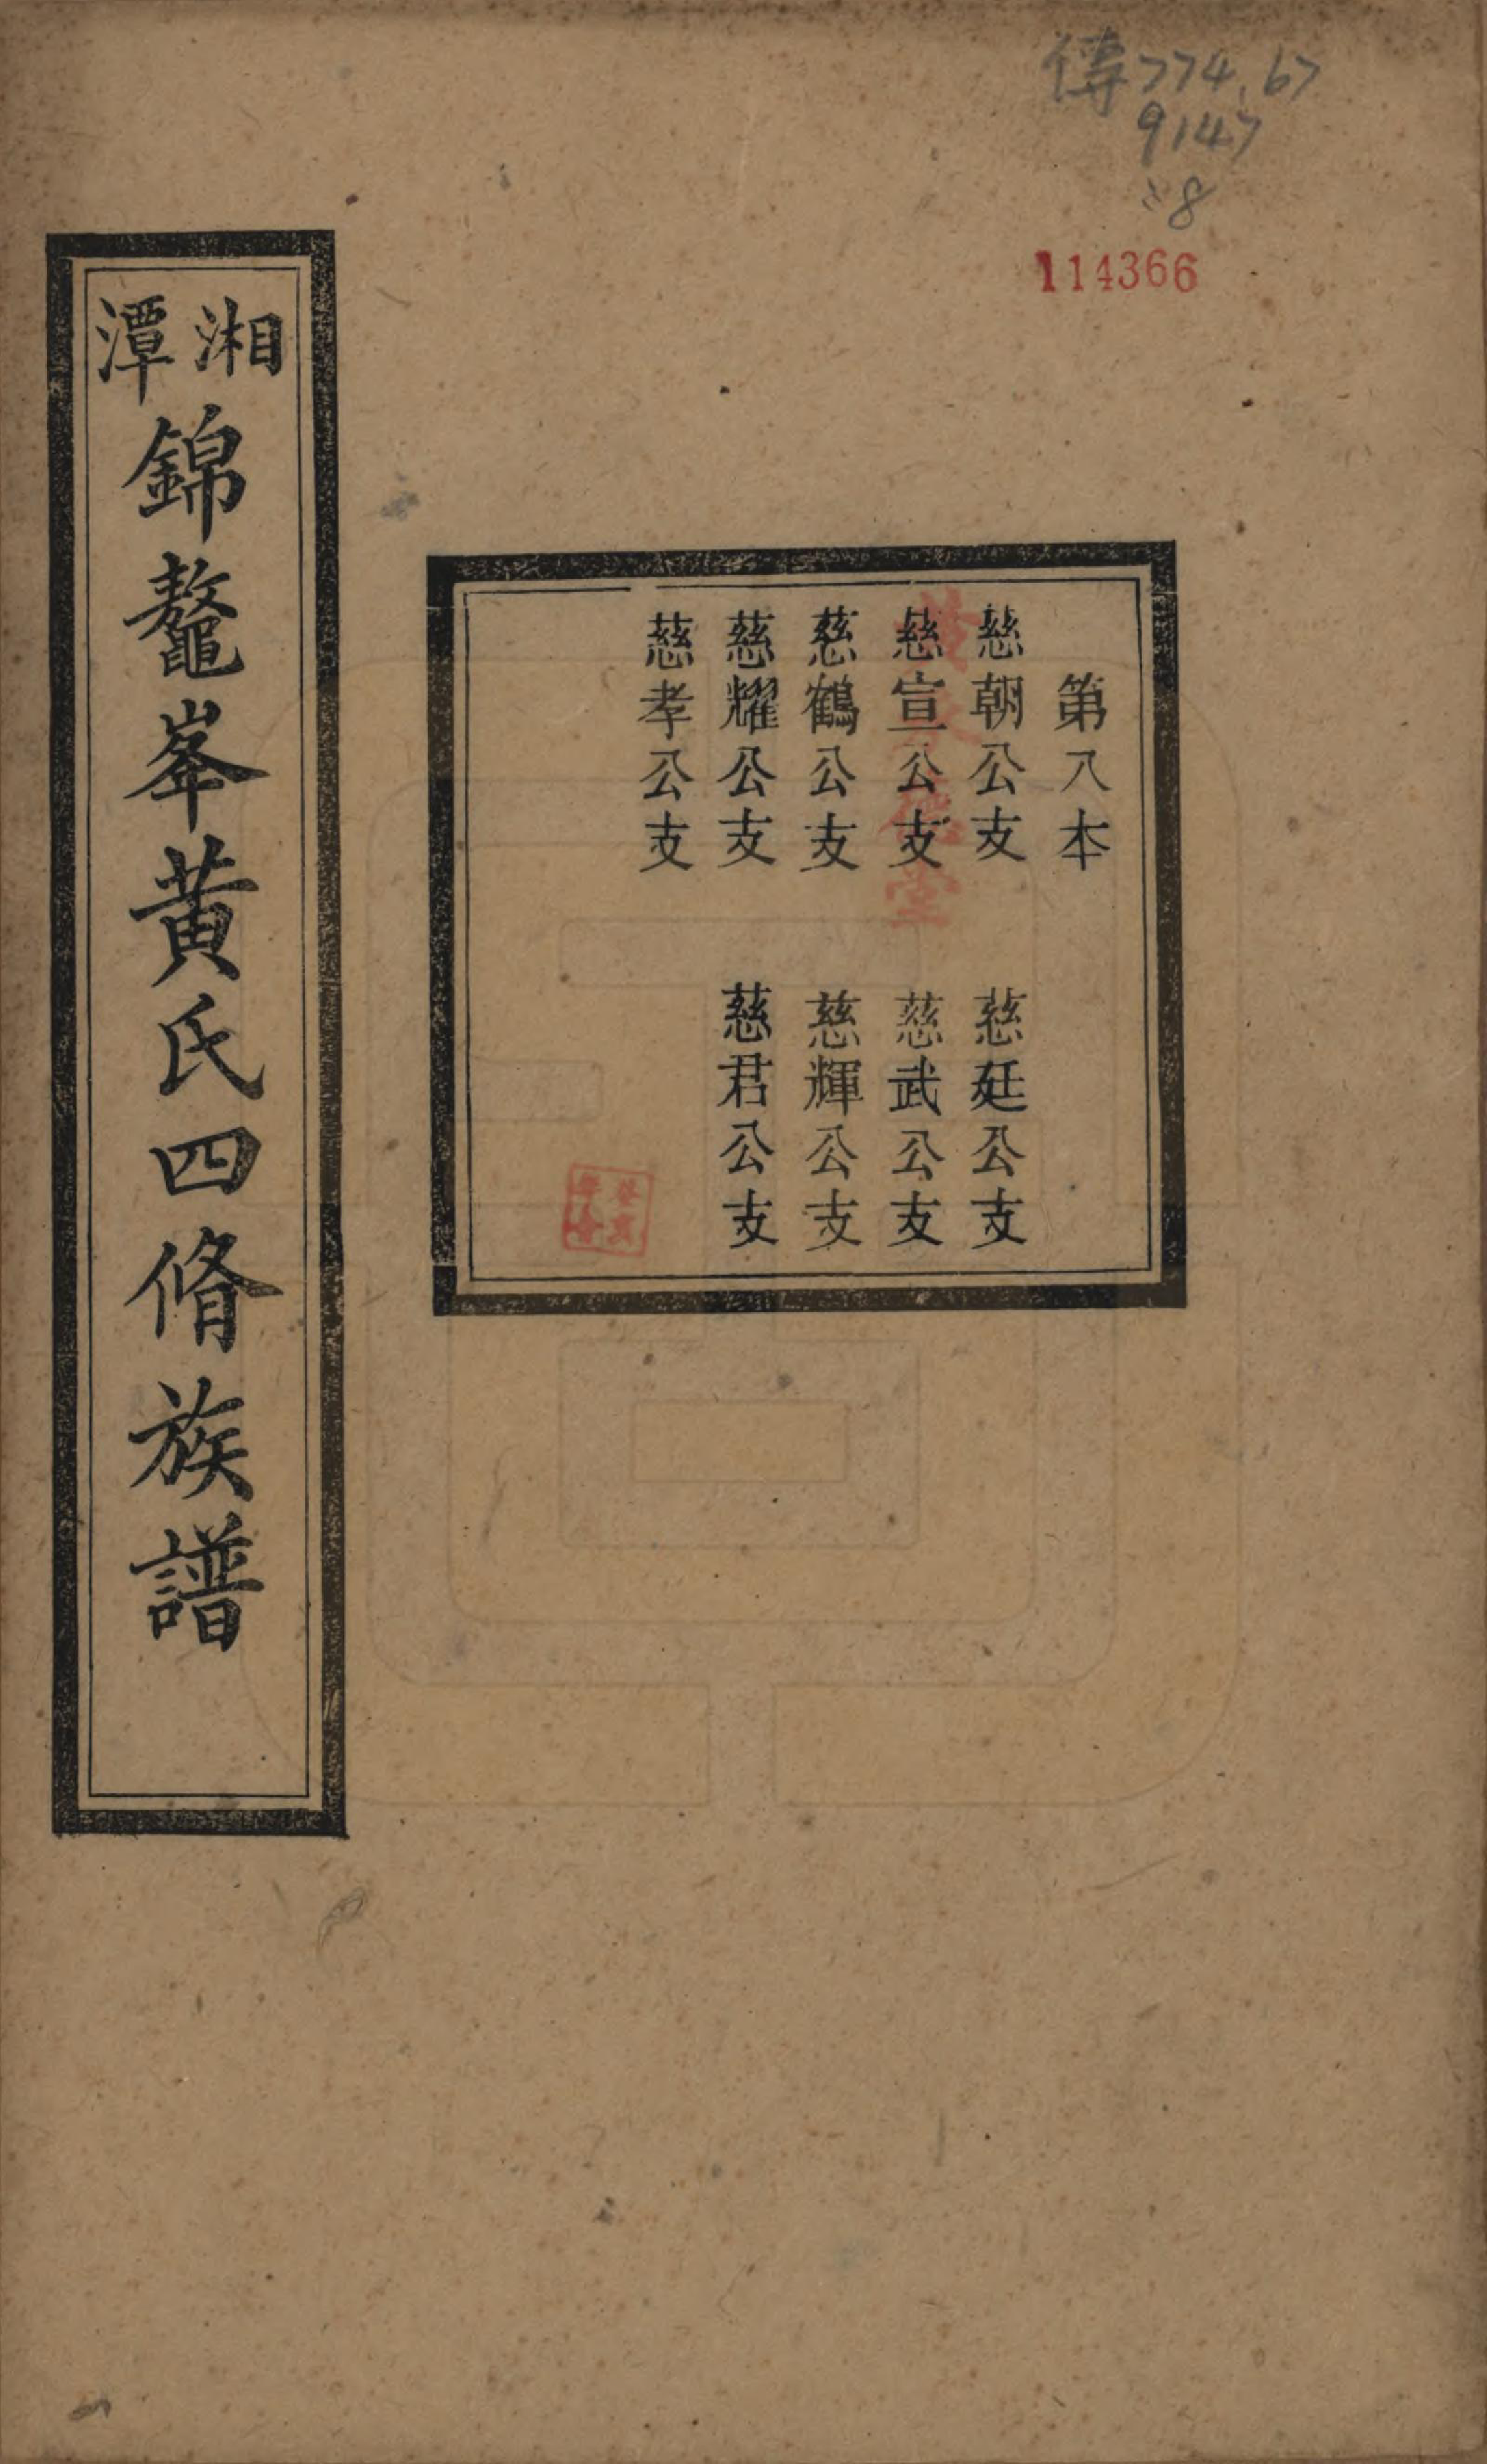 傳774.67
9147
:8
114366
第八本
慈朝公支 慈廷公支
慈宣公支 慈武公支
慈鶴公支 慈輝公支
慈耀公支 慈君公支
慈孝公支
湘潭錦鼇峯黃氏四脩族譜